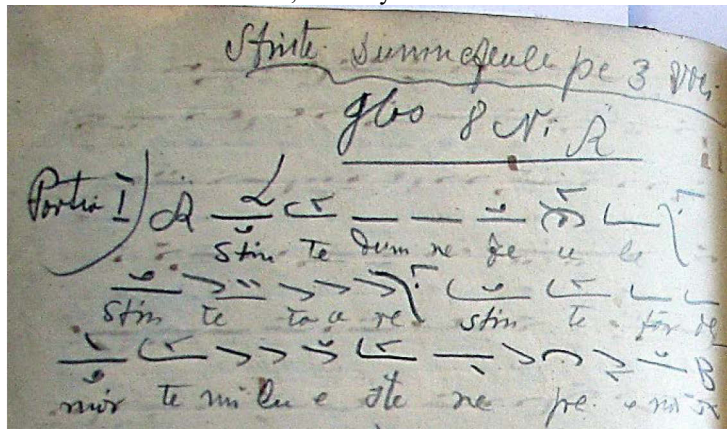 Sfinte Dumnezeule pe 3 voci
glas 8 Ni
Partia I)
Sfin te Dum ne ze u le
sfin te ta a re sfin te făr de
mor te mi lu e ște ne pe e noi